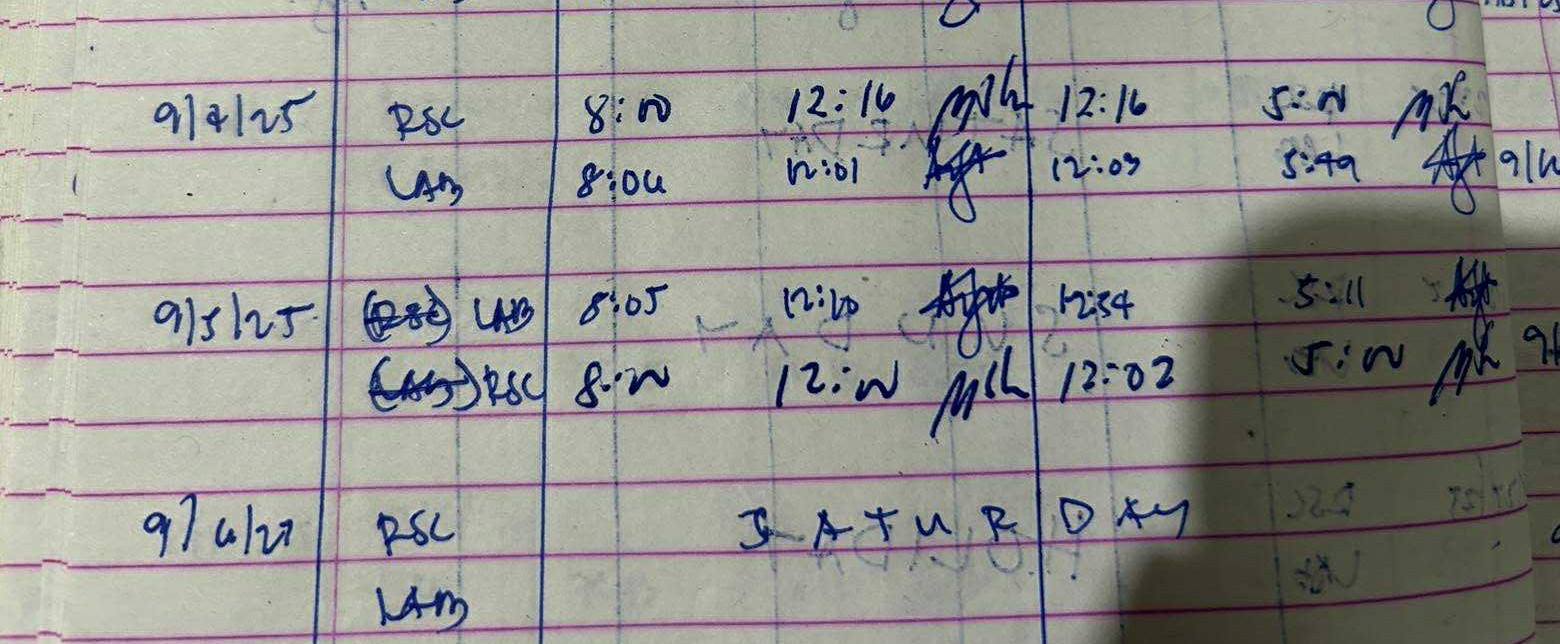 9/4/25 RSC 8:00 12:16 12:16 5:00
LAB 8:04 12:01 12:03 5:49
9/5/25 (RSC) LAB 8:05 12:20 12:54 5:11
(LAB) RSC 8:00 12:00 12:02 5:00
9/6/25 RSC SATURDAY
LAB